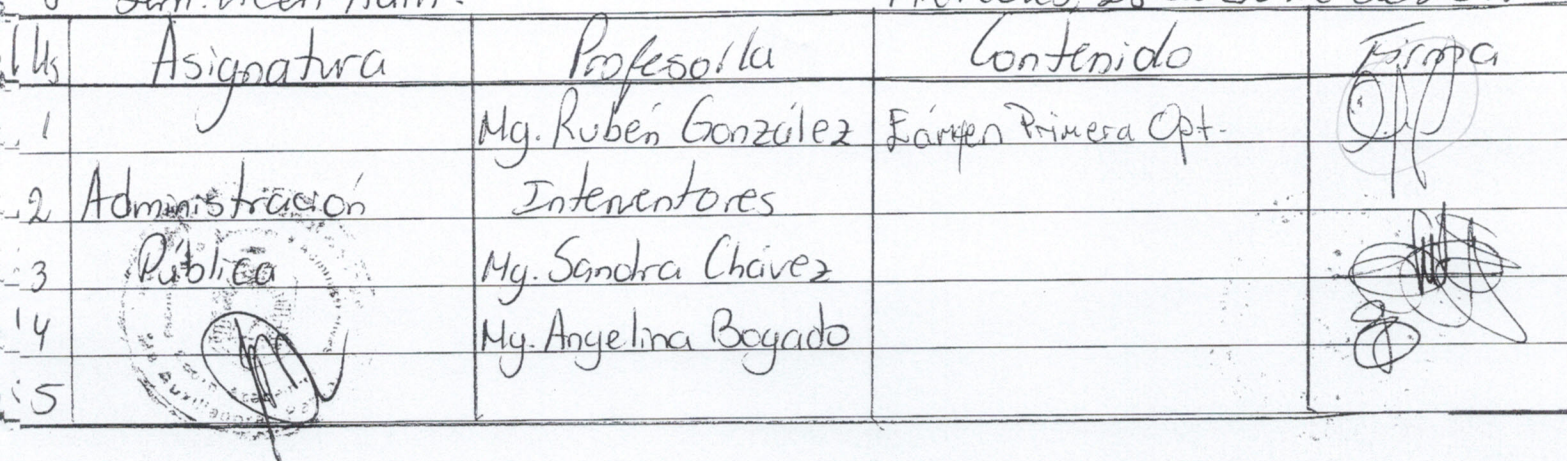 Hs Asignatura Profesor/a Contenido Firma
1 Mg. Rubén González Exámen Primera Opt.
2 Administración Interventores
3 Pública Mg. Sandra Chávez
4 Mg. Angelina Bogado
5